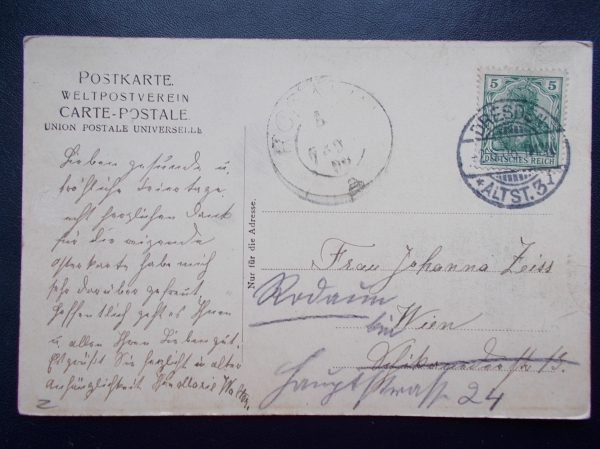 POSTKARTE.
WELTPOSTVEREIN
CARTE-POSTALE.
UNION POSTALE UNIVERSELLE
Lieben gesunde u.
fröhliche Feiertage,
echt herzlichen Dank
für die reizende
Osterkarte habe mich
sehr darüber gefreut.
Hoffentlich geht es Ihnen
u. allen Ihren Lieben gut.
Es grüßt Sie herzlich in alter
Anhänglichkeit Ihre Marie
2
Nur für die Adresse.
5 5
DEUTSCHES REICH
DRESDEN
*ALTST. 3
6
Frau Johanna Zeiss
Rodaun
bei
Wien
Hauptstrasse 24